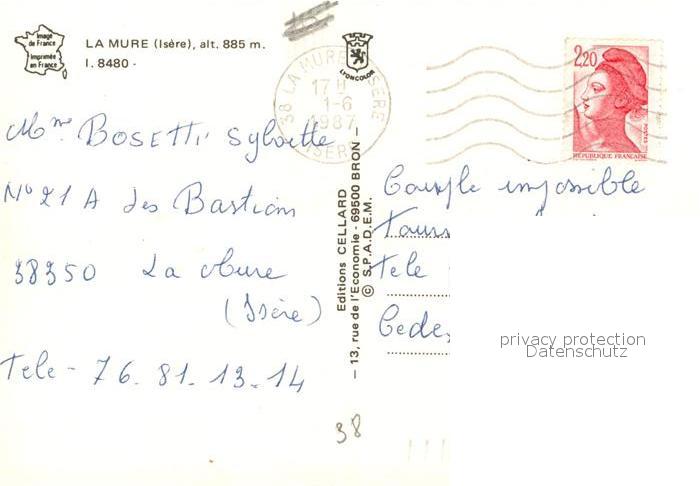 Image
de France
Imprimée
en France
LA MURE (Isère), alt. 885 m.
I. 8480 -
LYONCOLOR
38 LA MURE ISERE
17 H
1-6
1987
ISERE
2,20
REPUBLIQUE FRANÇAISE
Mme BOSETTI Sylvette
N° 21 A des Bastions
38350 La Mure
(Isère)
Tele - 76.81.13.14
Editions CELLARD
— 13, rue de l'Economie - 69500 BRON —
© S.P.A.D.E.M.
Couple impossible
Tours
Tele
Cedex
privacy protection
Datenschutz
38